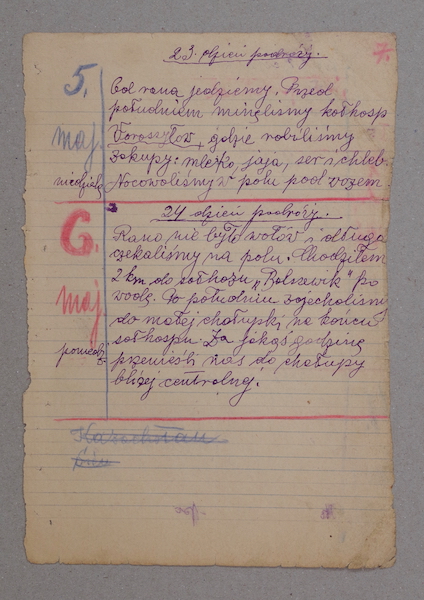 23. dzień podróży.
7.
5. maj niedziela
Od rana jedziemy. Przed
południem minęliśmy kołhosp
Woroszyłow, gdzie robiliśmy
zakupy: mleko, jaja, ser i chleb.
Nocowaliśmy w polu pod wozem.
24 dzień podróży.
6. maj poniedz.
Rano nie było wołów i długo
czekaliśmy na polu. Chodziłem
2 km do sołhozu "Bolszewik" po
wodę. Po południu zajechaliśmy
do małej chałupki na końcu
sołhospu. Za jakąś godzinę
przewieźli nas do chałupy
bliżej centralnej.